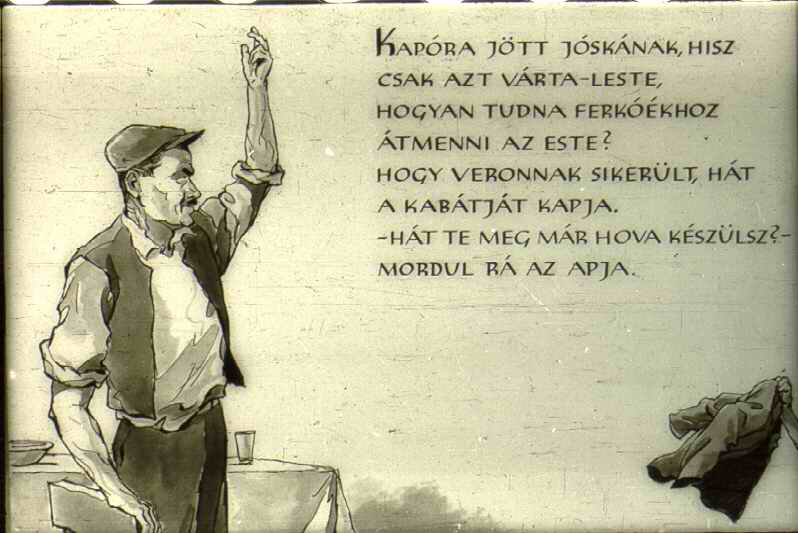 KAPÓRA JÖTT JÓSKÁNAK, HISZ
CSAK AZT VÁRTA-LESTE,
HOGYAN TUDNA FERKÓÉKHOZ
ÁTMENNI AZ ESTE?
HOGY VERONNAK SIKERÜLT, HÁT
A KABÁTJÁT KAPJA.
-HÁT TE MEG MÁR HOVA KÉSZÜLSZ?-
MORDUL RÁ AZ APJA.